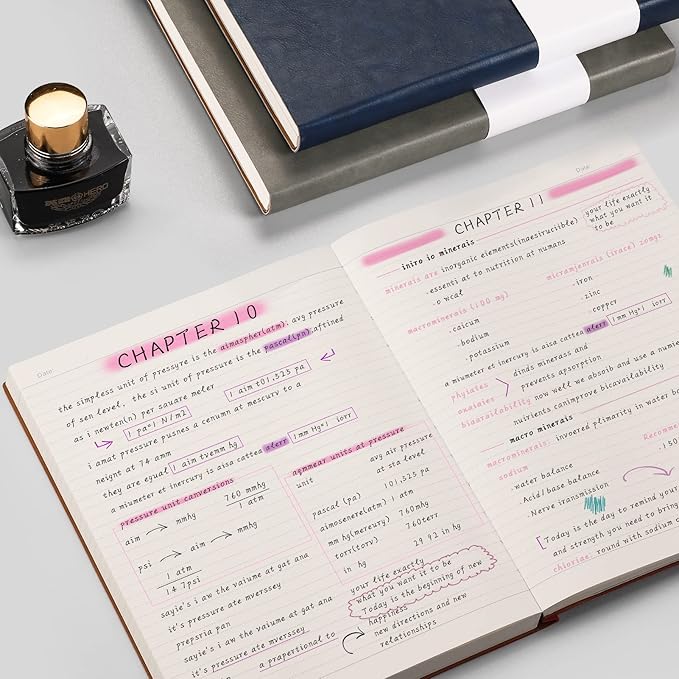 HERO
Date:
CHAPTER 10
the simplest unit of pressyre is the aimaspher(atm); avg pressure
of sen level, the si unit of pressure is the pascal(pn); aftined
as i newten(n) per sauare meler
1 pa=1 N/m2
1 aim to1,325 pa
i amat pressure pusnes a cenumn at mescurv to a
neignt at 74 amm
they are equal 1 aim tvemm hg
a miumeter et inercury is aisa cattea aferr 1 mm Hg=1 iorr
pressure unit canversions
aim → mmhg
760 mmhg
1 atm
psi → aim → mmhg
1 atm
14.7psi
sayie's i aw the vaiume at gat ana
it's pressure ate mverssey
prepsria pan
sayie's i aw the vaiume at gat ana
it's pressure at mverssey
a praprtional to
agmmear units at pressure
unit
avg air pressure
at sta level
pascal (pa) 101,325 pa
aimosenere(atm) 1 atm
mm hg(mercury) 760mhg
torr(torv) 760terr
in hg 29 92 in hg
your life exactly
what you want it to be
Today is the beginning of new
happiness
new directions and new
relationships
Date:
CHAPTER 11
your life exactly
what you want it
to be
iniro io minerais
minerais are inorganic elements(inaesiruciible)
· essenti at to nutrition at numans
· o wcal
micramjenrais (irace) 20mgs
· iron
· zinc
· copper
macrominerais (100 mg)
· caicum
· bodium
· potassium
a miumeter et inercury is aisa cattea aferr 1 mm Hg=1 iorr
phyiates
oxaiaies
dinds minerass and
prevents apsorption
bioavaiiability now well we absoib and use a numie
nuirients canimprove bicavailability
macro minerais
macrominerais: invoered plimarity in water b
sodium
Recomme
water balance
· Acid/base balance
Nerve iransmission
Today is the day to remind your
and strength you need to bring
chloriae: round with sodium c